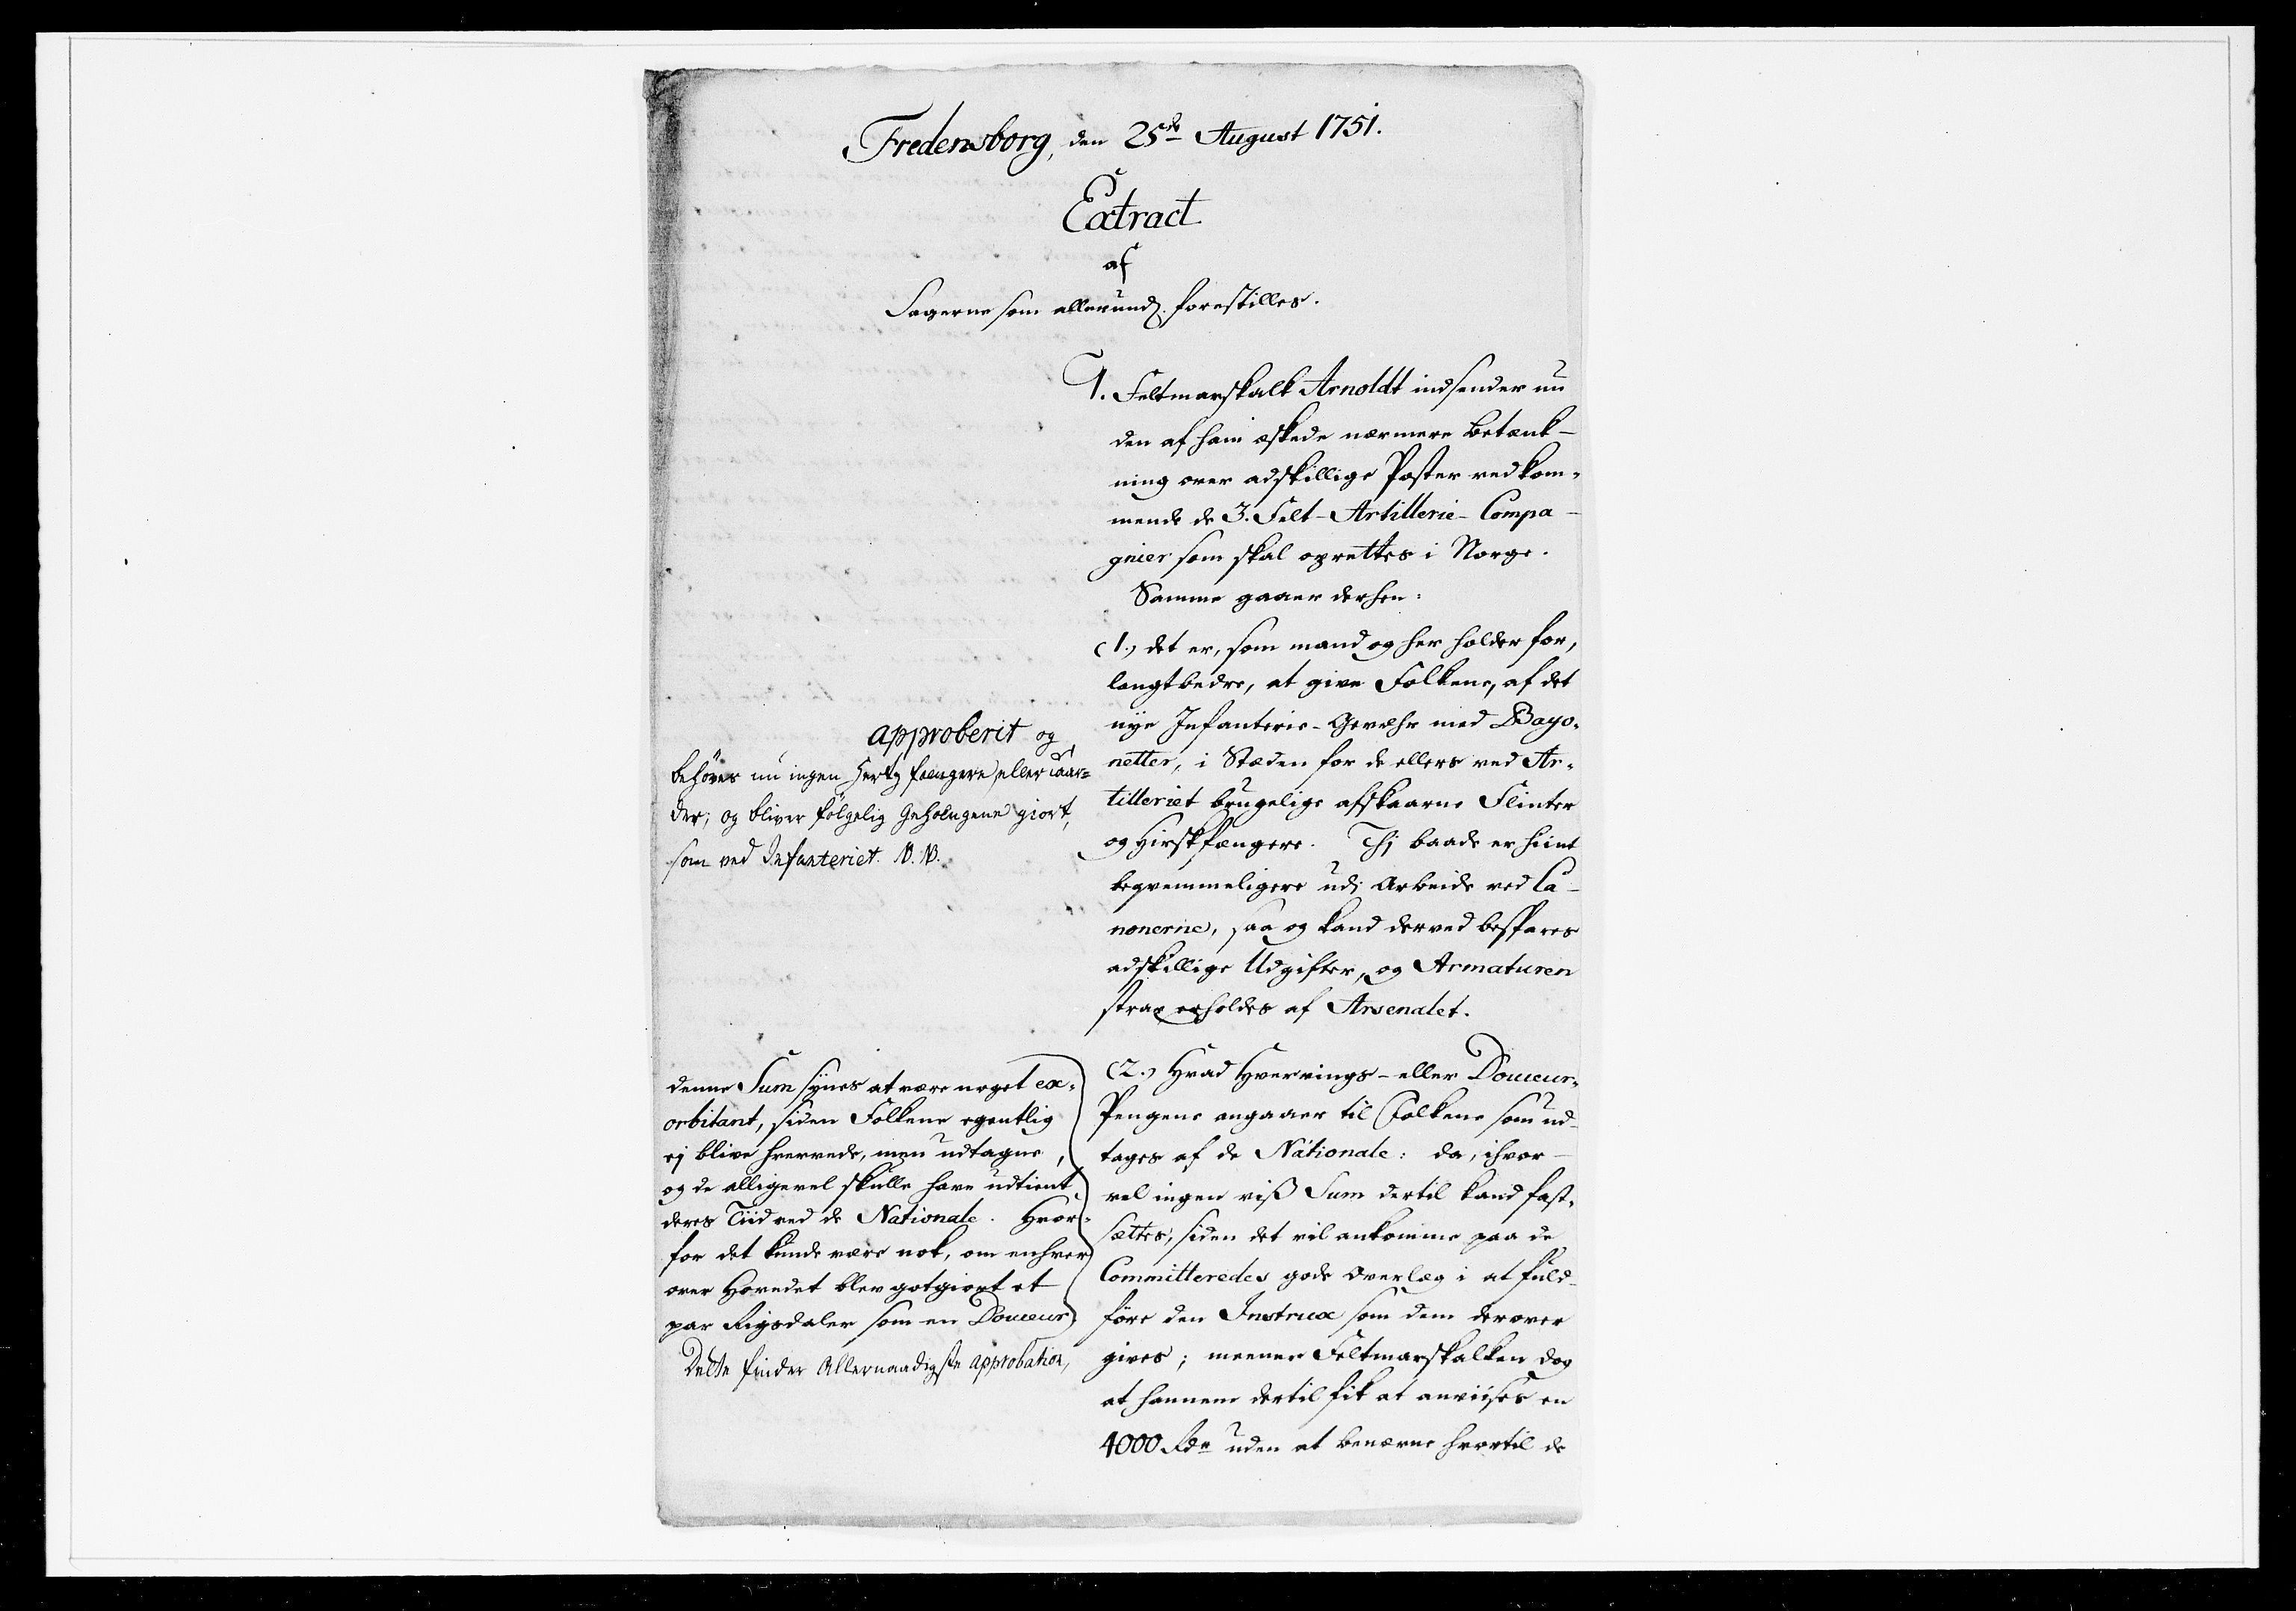 Fredensborg, den 25de August 1751.
Extract
af
Sagerne som allerund. forestilles.
1. Feltmarskalk Arnoldt indsender nu
den af ham æskede nærmere Betænk-
ning over adskillige Poster vedkom-
mende de 3. Felt-Artillerie-Compa-
gnier som skal oprettes i Norge.
Samme gaaer derhen:
(1.) det er, som mand og her holder for,
langt bedre, at give Folkene, af det
nye Infanterie-Gevæhr med Bayo-
netter, i Stæden for de ellers ved Ar-
tilleriet brugelige afskaarne Flinter
og Hirskfængere. Thi baade er hiint
beqvemmeligere udi Arbeide ved Ca-
nonerne, saa og kand derved bespares
adskillige Udgifter, og Armaturen
strax erholdes af Arsenalet.
approberit og
behøves nu ingen Hertz fængere, eller
der; og bliver følgelig Gehængene giort,
som ved Infanteriet. N.B.
(2.) Hvad Hverrings- eller Douceur-
Pengene angaaer til Folkene som ud-
tages af de Nationale: da, ihvor-
vel ingen viß Sum dertil kand fast-
sættes, siden det vil ankomme paa de
Committeredes gode Overlæg i at fuld-
føre den Instrux som dem derover
gives; meener Feltmarskalken dog
at hannem dertil fik at anviises en
4000 Rdr uden at benævne hvortil de
denne Sum synes at være noget ex-
orbitant, siden Folkene egentlig
ej blive hverrede, men udtagne,
og de alligevel skulle have udtient
deres Tiid ved de Nationale. Hvor-
for det kunde være nok, om enhver
over Hovedet blev gotgiort et
par Rigsdaler som en Douceur
Dette finder Allernaadigste approbation,